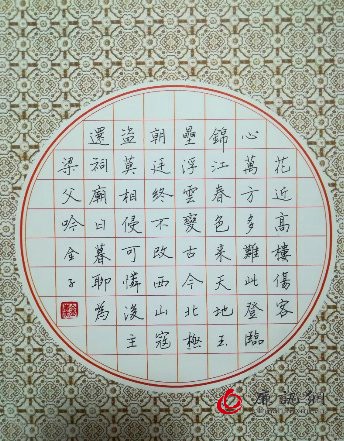 花近高樓傷客
心萬方多難此登臨
錦江春色來天地玉
壘浮雲變古今北極
朝廷終不改西山寇
盗莫相侵可憐後主
還祠廟日暮聊為
梁父吟